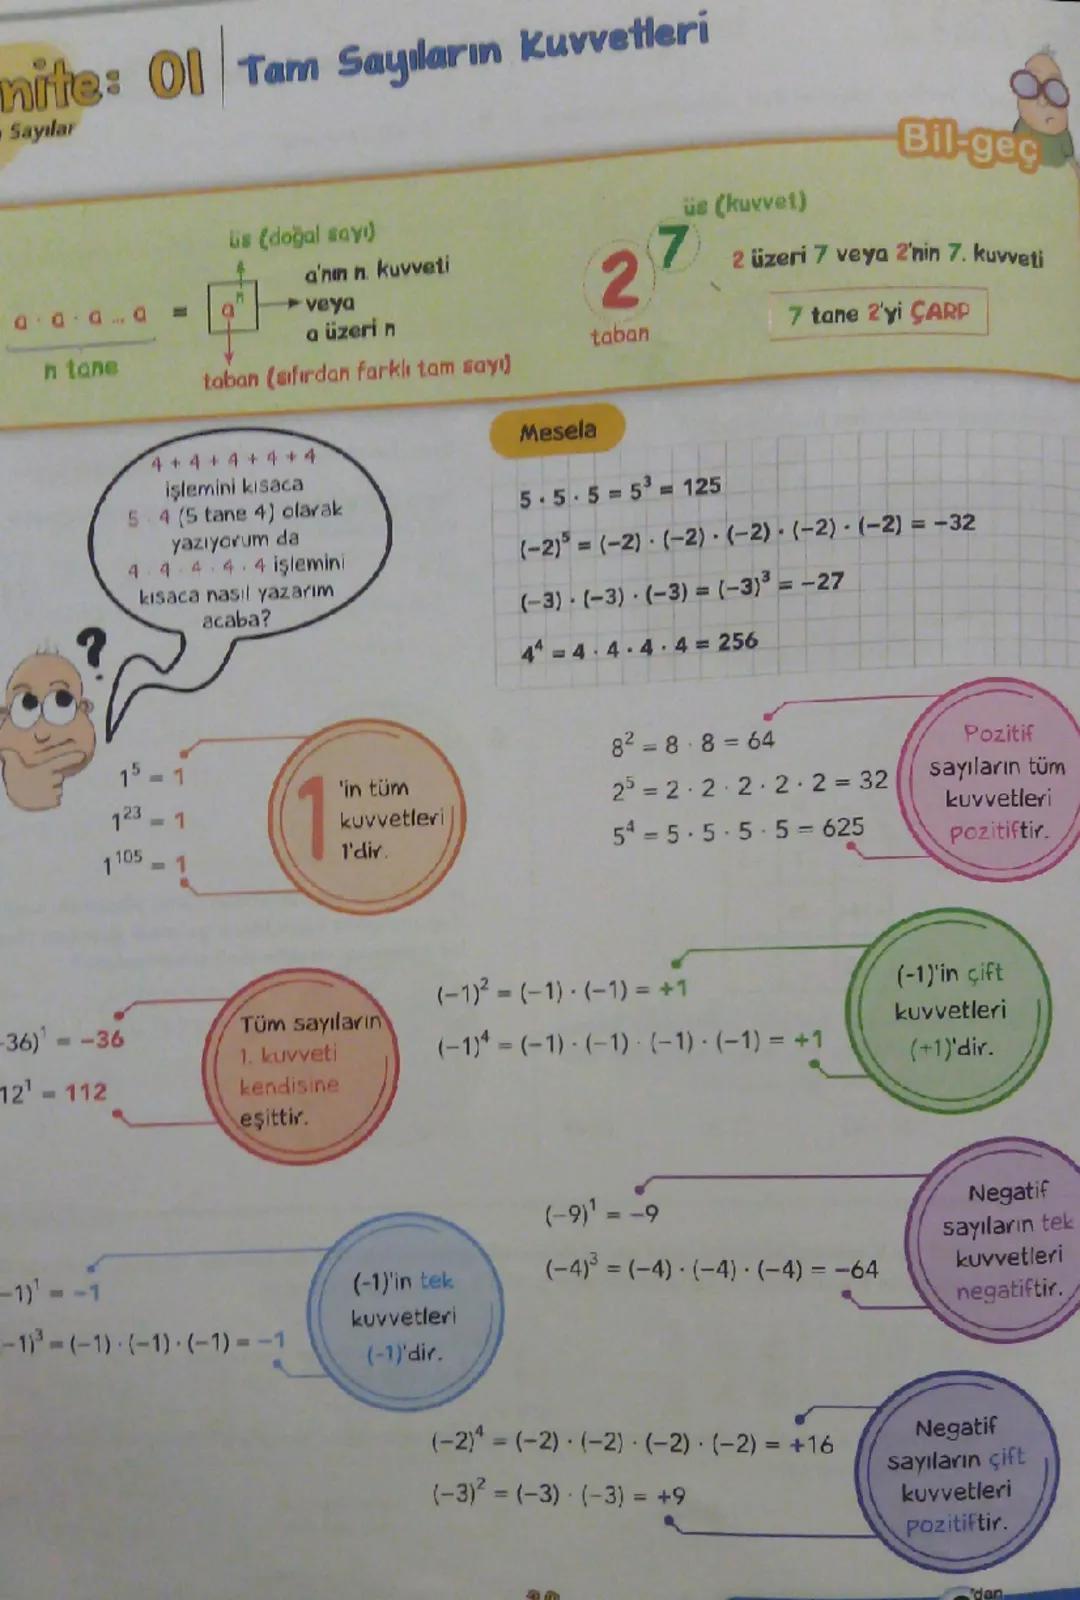 nite: 01 Tam Sayıların Kuvvetleri
Sayılar
Bil-geç
üs (doğal sayı)
a . a . a ... a = aⁿ
n tane
a'nın n. kuvveti
veya
a üzeri n
taban (sıfırdan farklı tam sayı)
üs (kuvvet)
2⁷
taban
2 üzeri 7 veya 2'nin 7. kuvveti
7 tane 2'yi ÇARP
4 + 4 + 4 + 4 + 4
işlemini kısaca
5 . 4 (5 tane 4) olarak
yazıyorum da
4 . 4 . 4 . 4 . 4 işlemini
kısaca nasıl yazarım
acaba?
?
Mesela
5 . 5 . 5 = 5³ = 125
(-2)⁵ = (-2) . (-2) . (-2) . (-2) . (-2) = -32
(-3) . (-3) . (-3) = (-3)³ = -27
4⁴ = 4 . 4 . 4 . 4 = 256
1⁵ = 1
1²³ = 1
1¹⁰⁵ = 1
1'in tüm
kuvvetleri
1'dir.
8² = 8 . 8 = 64
2⁵ = 2 . 2 . 2 . 2 . 2 = 32
5⁴ = 5 . 5 . 5 . 5 = 625
Pozitif
sayıların tüm
kuvvetleri
pozitiftir.
-36)¹ = -36
12¹ = 112
Tüm sayıların
1. kuvveti
kendisine
eşittir.
(-1)² = (-1) . (-1) = +1
(-1)⁴ = (-1) . (-1) . (-1) . (-1) = +1
(-1)'in çift
kuvvetleri
(+1)'dir.
-1)¹ = -1
-1)³ = (-1) . (-1) . (-1) = -1
(-1)'in tek
kuvvetleri
(-1)'dir.
(-9)¹ = -9
(-4)³ = (-4) . (-4) . (-4) = -64
Negatif
sayıların tek
kuvvetleri
negatiftir.
(-2)⁴ = (-2) . (-2) . (-2) . (-2) = +16
(-3)² = (-3) . (-3) = +9
Negatif
sayıların çift
kuvvetleri
pozitiftir.
'dan